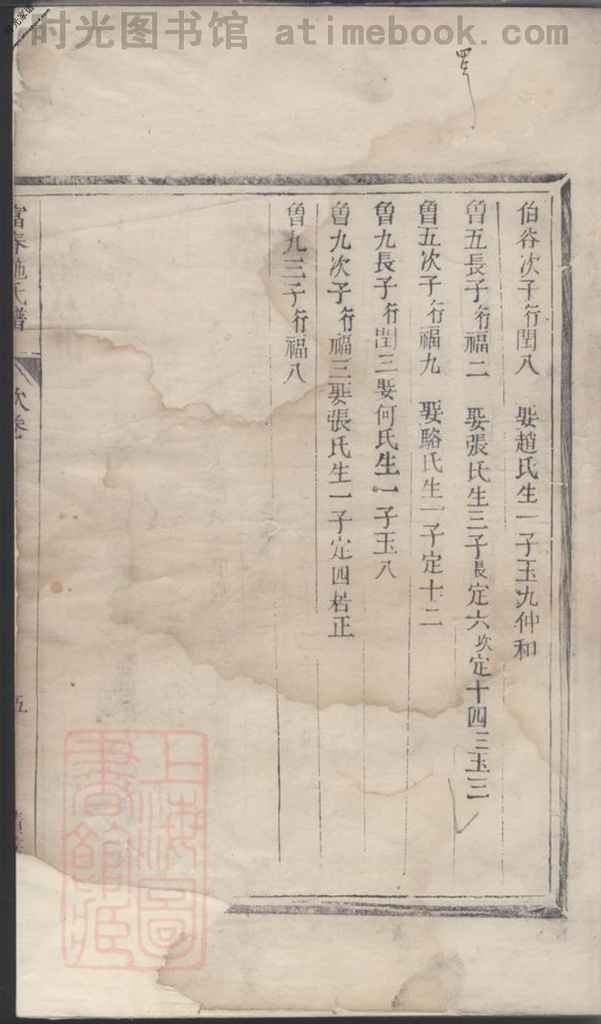 时光图书馆 atimebook.com
伯谷次子行閏八 娶趙氏生一子玉九仲和
曾五長子行福二 娶張氏生三子長定六次定十四三玉三
曾五次子行福九 娶駱氏生一子定十二
曾九長子行閏三娶何氏生一子玉八
曾九次子行福三娶張氏生一子定四若正
曾九三子行福八
富春施氏譜 次卷
五
上海圖書館藏